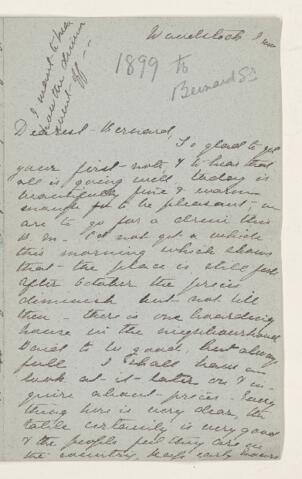 Wandlebok Inn
I want to hear
how the dinner
went off --
1899 to
Bernard S?
Dearest Bernard,
So glad to get
your first note & to hear that
all is going well. Today is
beautifully fine & warm
enough to be pleasant; we
are to go for a drive this
P.M. Cd not get a vehicle
this morning which shows
that the place is still full
After October the prices
diminish but not till
then - there is one boarding
house in the neighbourhood
said to be good, but always
full I shall have a
look at it later on & in-
quire about prices - Every
thing here is very dear, the
table certainly is very good
& the people feel they are in
the country, keep early hours